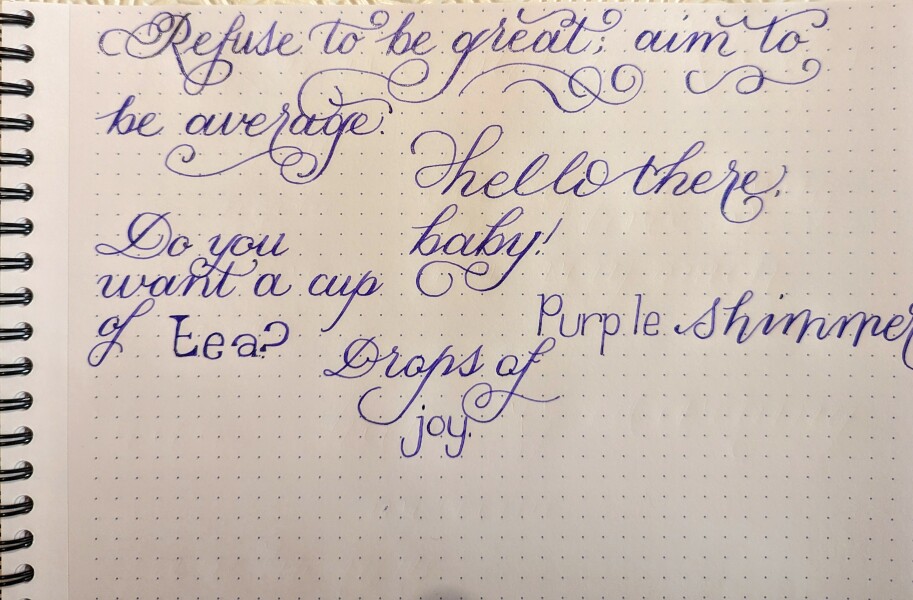 Refuse to be great; aim to
be average.
hello there,
baby!
Do you
want a cup
of tea?
Purple shimmer
Drops of
joy.